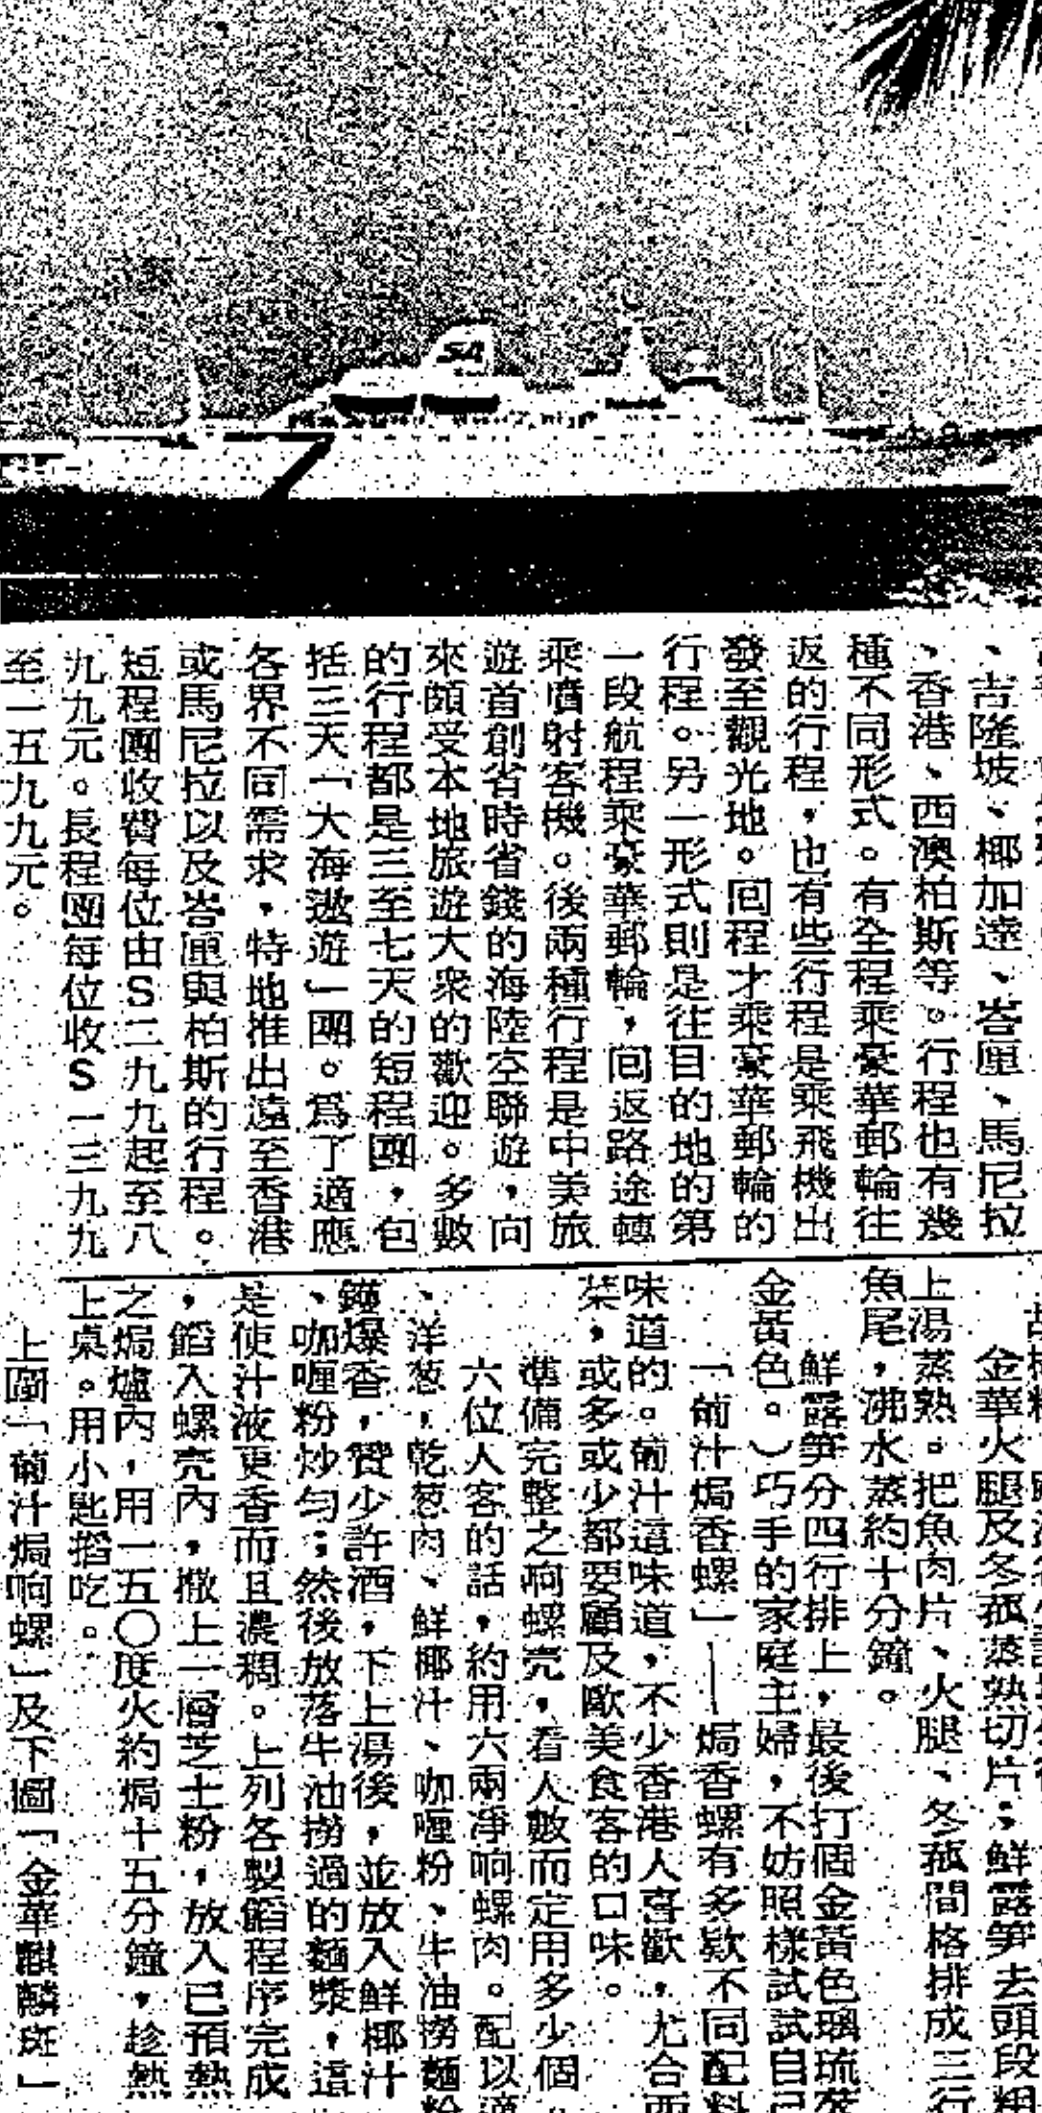 SA
、吉隆坡、椰加達、峇厘、馬尼拉
、香港、西澳柏斯等。行程也有幾
種不同形式。有全程乘豪華郵輪往
返的行程，也有些行程是乘飛機出
發至觀光地。回程才乘豪華郵輪的
行程。另一形式則是往目的地的第
一段航程乘豪華郵輪，回返路途轉
乘噴射客機。後兩種行程是中美旅
遊首創省時省錢的海陸空聯遊，向
來頗受本地旅遊大衆的歡迎。多數
的行程都是三至七天的短程團，包
括三天「大海遨遊」團。爲了適應
各界不同需求，特地推出遠至香港
或馬尼拉以及峇厘與柏斯的行程。
短程團收費每位由S二九九起至八
九九元。長程團每位收S一三九九
至一五九九元。
金華火腿及冬菰蒸熟切片；鮮露笋去頭段粗
上湯蒸熟。把魚肉片、火腿、冬菰間格排成三行
魚尾，沸水蒸約十分鐘。
鮮露笋分四行排上，最後打個金黃色璃琉茨
金黃色。）巧手的家庭主婦，不妨照樣試試自己
「葡汁焗香螺」——焗香螺有多欵不同配料
味道的。葡汁這味道，不少香港人喜歡，尤合西
菜，或多或少都要顧及歐美食客的口味。
準備完整之响螺壳，看人數而定用多少個。
六位人客的話，約用六兩淨响螺肉。配以適
、洋葱，乾葱肉、鮮椰汁、咖喱粉、牛油撈麵粉
鑊爆香，贊少許酒，下上湯後，並放入鮮椰汁
、咖喱粉炒勻；然後放落牛油撈過的麵漿，這
是使汁液更香而且濃稠。上列各製餡程序完成
，餡入螺壳內，撒上一層芝士粉，放入已預熱
之焗爐內，用一五〇度火約焗十五分鐘，趁熱
上桌。用小匙搯吃。
上圖「葡汁焗响螺」及下圖「金華麒麟斑」